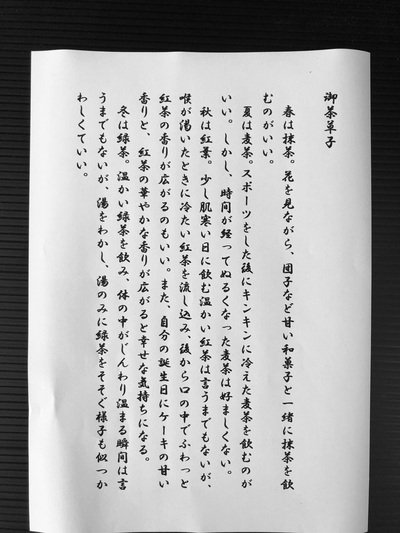 御茶草子
春は抹茶。花を見ながら、団子など甘い和菓子と一緒に抹茶を飲
むのがいい。
夏は麦茶。スポーツをした後にキンキンに冷えた麦茶を飲むのが
いい。しかし、時間が経ってぬるくなった麦茶は好ましくない。
秋は紅葉。少し肌寒い日に飲む温かい紅茶は言うまでもないが、
喉が渇いたときに冷たい紅茶を流し込み、後から口の中でふわっと
紅茶の香りが広がるのもいい。また、自分の誕生日にケーキの甘い
香りと、紅茶の華やかな香りが広がると幸せな気持ちになる。
冬は緑茶。温かい緑茶を飲み、体の中がじんわり温まる瞬間は言
うまでもないが、湯をわかし、湯のみに緑茶をそそぐ様子も似つか
わしくていい。